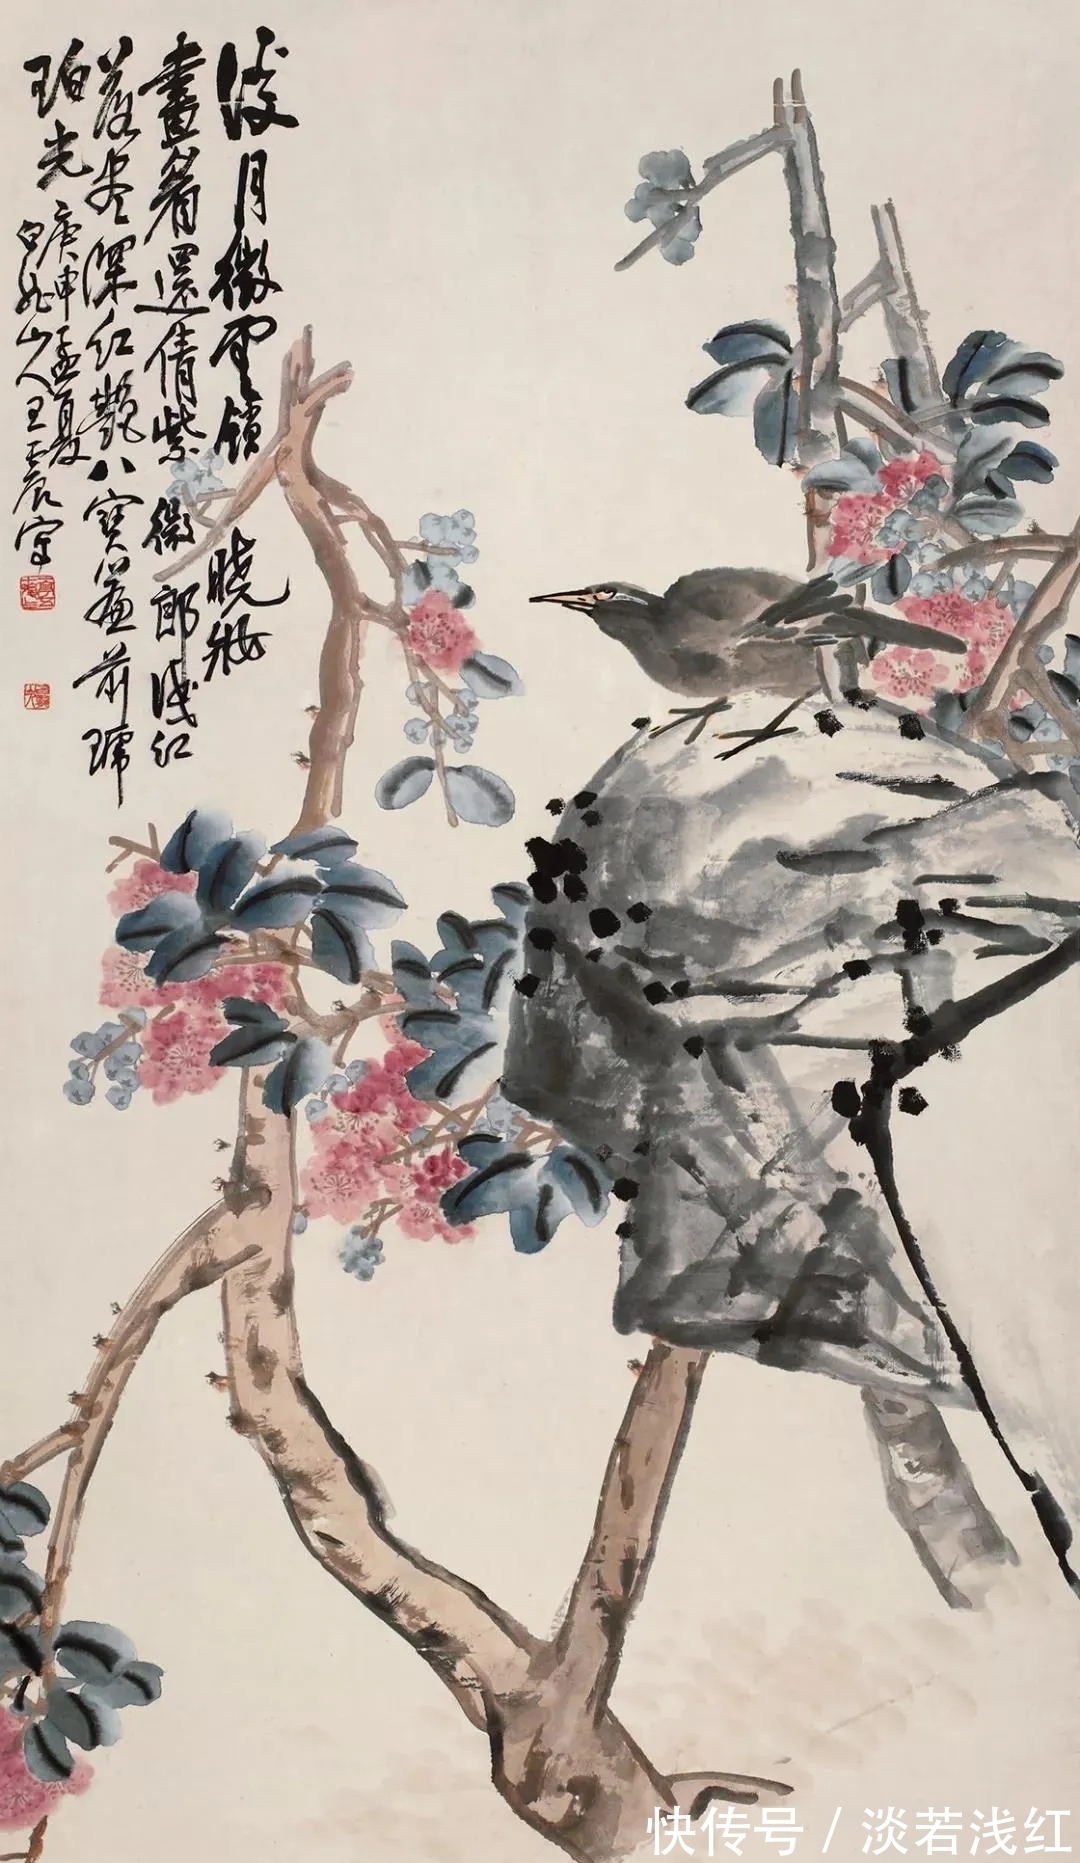 淡月微雲鎖曉妝
畫眉還倩紫薇郎淺紅
落尽深紅艷八寶簾前琥
珀光 庚申孟夏
白龍山人王震寫
快传号 / 淡若浅红